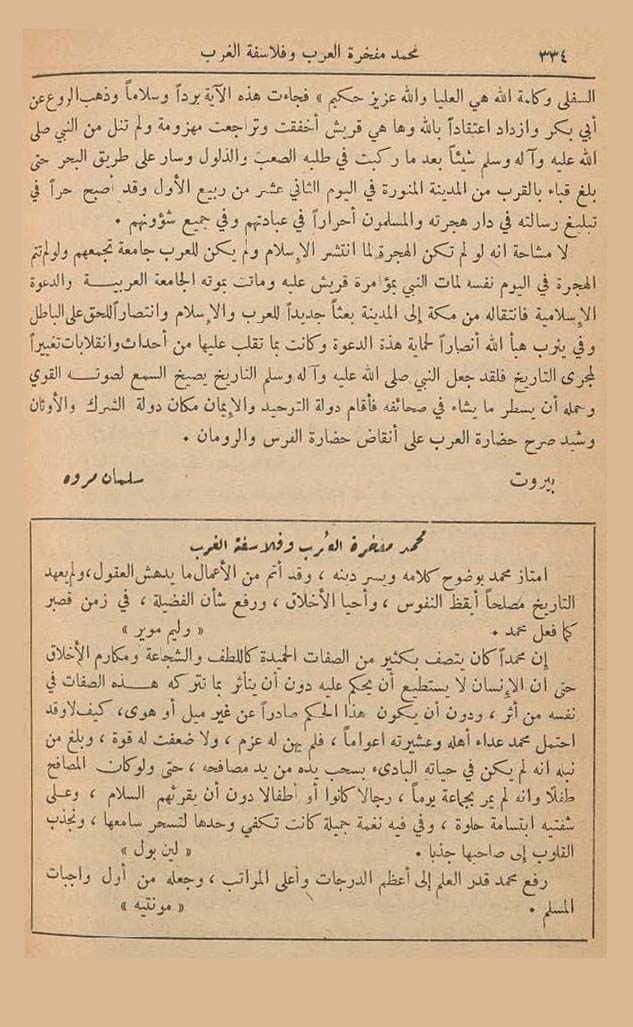 ٣٣٤
محمد مفخرة العرب وفلاسفة الغرب
السفلى وكلمة الله هي العليا والله عزيز حكيم » فجاءت هذه الآية برداً وسلاماً وذهب الروع عن
أبي بكر وازداد اعتقاداً بالله وها هي قريش أخفقت وتراجعت مهزومة ولم تنل من النبي صلى
الله عليه وآله وسلم شيئاً بعد ما ركبت في طلبه الصعب والذلول وسار على طريق البحر حتى
بلغ قباء بالقرب من المدينة المنورة في اليوم الثاني عشر من ربيع الأول وقد أصبح حراً في
تبليغ رسالته في دار هجرته والمسلمون أحراراً في عبادتهم وفي جميع شؤونهم .
لا مشاحة انه لو لم تكن الهجرة لما انتشر الإسلام ولم يكن للعرب جامعة تجمعهم ولو لم تتم
الهجرة في اليوم نفسه لمات النبي بمؤامرة قريش عليه وماتت بموته الجامعة العربية والدعوة
الإسلامية فانتقاله من مكة إلى المدينة بعثاً جديداً للعرب والإسلام وانتصاراً للحق على الباطل
وفي يثرب هيأ الله أنصاراً لحماية هذة الدعوة وكانت بما تقلب عليها من أحداث وانقلابات تغييراً
لمجرى التاريخ فلقد جعل النبي صلى الله عليه وآله وسلم التاريخ يصيخ السمع لصوته القوي
وحمله أن يسطر ما يشاء في صحائفه فأقام دولة التوحيد والإيمان مكان دولة الشرك والأوثان
وشيد صرح حضارة العرب على أنقاض حضارة الفرس والرومان .
بيروت سلمان مروه
محمد مفخرة العرب وفلاسفة الغرب
امتاز محمد بوضوح كلامه ويسر دينه ، وقد أتم من الأعمال ما يدهش العقول ، ولم يعهد
التاريخ مصلحاً أيقظ النفوس ، وأحيا الأخلاق ، ورفع شأن الفضيلة ، في زمن قصير
كما فعل محمد . « وليم موير »
إن محمداً كان يتصف بكثير من الصفات الحميدة كاللطف والشجاعة ومكارم الأخلاق
حتى ان الإنسان لا يستطيع أن يحكم عليه دون أن يتأثر بما تتركه هذه الصفات في
نفسه من أثر ، ودون أن يكون هذا الحكم صادراً عن غير ميل أو هوى ، كيف لا وقد
احتمل محمد عداء أهله وعشيرته اعواماً ، فلم يهن له عزم ، ولا ضعفت له قوة ، وبلغ من
نبله انه لم يكن في حياته البادىء بسحب يده من يد مصافحه ، حتى ولو كان المصافح
طفلاً وانه لم يمر بجماعة يوماً ، رجالا كانوا أو أطفالا دون أن يقرئهم السلام ، وعلى
شفتيه ابتسامة حلوة ، وفي فيه نغمة جميلة كانت تكفي وحدها لتسحر سامعها ، وتجذب
القلوب إلى صاحبها جذبا . « لين بول »
رفع محمد قدر العلم إلى أعظم الدرجات وأعلى المراتب ، وجعله من أول واجبات
المسلم . « مونتيه »